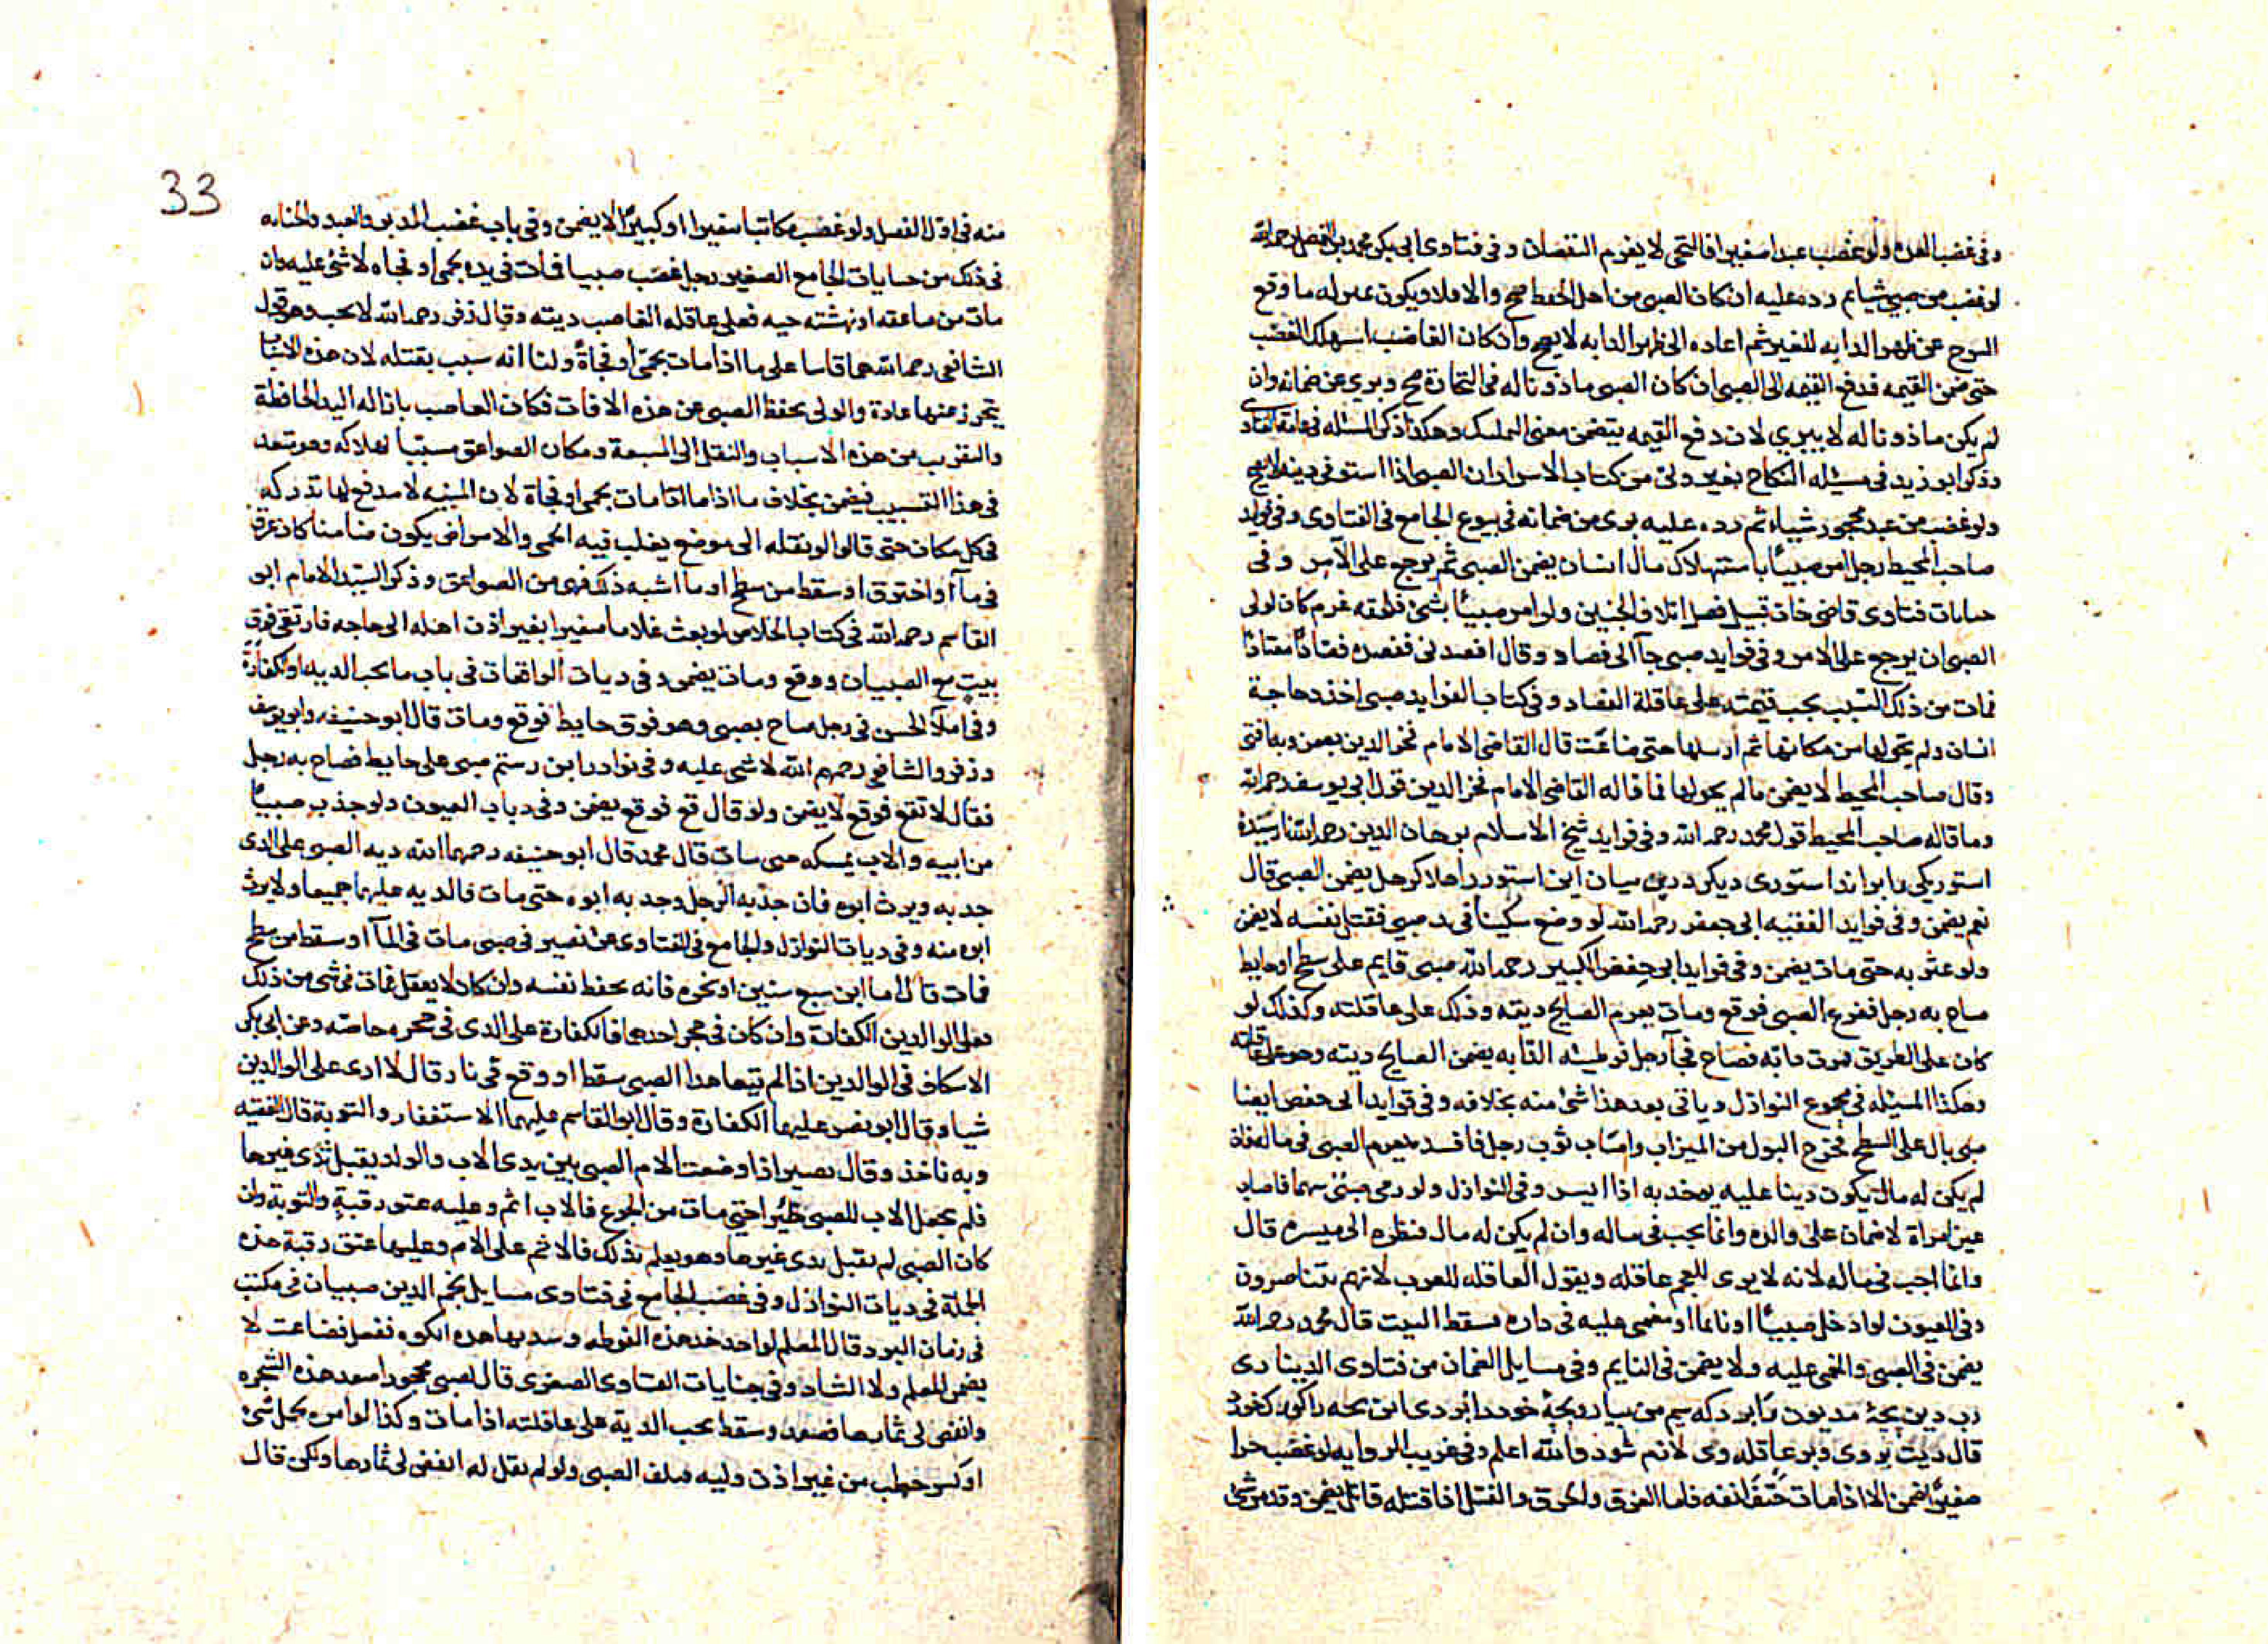 وفي غصب العدة ولو غصب عبدا صغيرا فالتحى لا يغرم النقصان وفي فتاوى ابي بكر محمد بن الفضل رحمه الله
لو غصب من صبي شيا ثم رده عليه ان كان الصبي من اهل الحفظ صح والا فلا ويكون بمنزله ما وقع
السرج عن ظهر الدابه للغير ثم اعاده الى ظهر الدابه لا يصح وان كان الغاصب استهلك الغصب
حتى ضمن القيمه فدفع القيمه الى الصبي ان كان الصبي ماذونا له في التجارة صح وبري عن ضمانه وان
لم يكن ماذونا له لا يبري لان دفع القيمه يتضمن معنى التمليك وهكذا ذكر المسئله في عامة الفتاوى
وذكر ابو زيد في مسئله النكاح بغير ولي من كتاب الاسرار ان الصبي اذا استوفى دينه لا يصح
ولو غصب من عبد محجور شيا ثم رده عليه بري من ضمانه في بيوع الجامع في الفتاوى وفي فوايد
صاحب المحيط رجل امر صبيا باستهلاك مال انسان يضمن الصبي ثم يرجع على الامر وفي
جنايات فتاوى قاضي خان قبيل فصل اتلاف الجنين ولو امر صبيا بشئ فلحقه غرم كان لولي
الصبي ان يرجع على الامر وفي فوايد صبي جآ الى فصاد وقال افصدني ففصده فصادا معتادا
فمات من ذلك السبب يجب قيمته على عاقلة الفصاد وفي كتاب الفوايد صبي اخذ دجاجة
انسان ولم يحولها من مكانها ثم ارسلها حتى ضاعت قال القاضي الامام فخر الدين يضمن وبه افتى
وقال صاحب المحيط لا يضمن ما لم يحولها فما قاله القاضي الامام فخر الدين قول ابي يوسف رحمه الله
وما قاله صاحب المحيط قول محمد رحمه الله وفي فوايد شيخ الاسلام برهان الدين رحمه الله نارسيدة
استور يكي را بر استوري ديكر دربن ميان اين استور را هلاك هل يضمن الصبي قال
نعم يضمن وفي فوايد الفقيه ابي جعفر رحمه الله لو وضع سكينا في يد صبي فقتل نفسه لا يضمن
ولو عثر به حتى مات يضمن وفي فوايد ابي حفص الكبير رحمه الله صبي قايم على سطح او حايط
صاح به رجل ففزع الصبي فوقع ومات يغرم الصايح ديته وذلك على عاقلته وكذلك لو
كان على الطريق فمرت دابه فصاح فجآ رجل فوطيته الدابه يضمن الصايح ديته وهو على عاقلته
وهكذا المسئله في مجموع النوازل وياتي بعد هذا شئ منه بخلافه وفي فوايد ابي حفص ايضا
صبي بال على السطح فخرج البول من الميزاب واصاب ثوب رجل فافسده يغرم الصبي في ماله فان
لم يكن له مال يكون دينا عليه يوخذ به اذا ايسر وفي النوازل ولو رمى صبي سهما فاصاب
عين امراة لا ضمان على والده وانما يجب في ماله وان لم يكن له مال فنظرة الى ميسرة قال
وانما اجب في ماله لانه لا يرى للعجم عاقله ويقول العاقله للعرب لانهم يتناصرون
وفي العيون لو ادخل صبيا او نائما او مغمى عليه في داره فسقط البيت قال محمد رحمه الله
يضمن في الصبي والمغمى عليه ولا يضمن في النايم وفي مسايل الضمان من فتاوى الديناري
قال ديت بر وى وبر عاقله وى لازم شود والله اعلم وفي غريب الروايه لو غصب حرا
صغيرا يضمن الا اذا مات حتف انفه فاما الغرق والحرق والقتل اذا قتله قاتل يضمن وقد مر شئ
33
منه في اول الفصل ولو غصب مكاتبا صغيرا او كبيرا لا يضمن وفي باب غصب المدبر والعبد والجنايه
في ذلك من جنايات الجامع الصغير رجل غصب صبيا فمات في يده بحمى او فجاه لا شئ عليه وان
مات من صاعقه او نهشته حيه فعلى عاقله الغاصب ديته وقال زفر رحمه الله لا يجب وهو قول
الشافعي رحمه الله هما قاسا على ما اذا مات بحمى او فجاة ولنا انه سبب بقتله لان هذه الاسباب
يتحرز عنها عادة والولي يحفظ الصبي عن هذه الافات فكان الغاصب بازاله اليد الحافظة
والتقريب من هذه الاسباب والنقل الى المسبعة ومكان الصواعق مسببا لهلاكه وهو متعد
في هذا التسبيب فيضمن بخلاف ما اذا مات بحمى او فجاة لان المنيه لا مدفع لها تدركه
في كل مكان حتى قالوا لو نقله الى موضع يغلب فيه الحمى والامراض يكون ضامنا كان غرق
في مآ او احترق او سقط من سطح او ما اشبه ذلك فهي من الصواعق وذكر السيد الامام ابو
القاسم رحمه الله في كتاب الخلاص لو بعث غلاما صغيرا بغير اذن اهله الى حاجه فارتقى فوق
بيت مع الصبيان ووقع ومات يضمن وفي ديات الواقعات في باب ما يجب الديه او الكفارة
وفي املآ الحسن في رجل صاح بصبي وهو فوق حايط فوقع ومات قال ابو حنيفه وابو يوسف
وزفر والشافعي رحمهم الله لا شي عليه وفي نوادر ابن رستم صبي على حايط فصاح به رجل
فقال لا تقع فوقع لا يضمن ولو قال قع فوقع يضمن وفي ديات العيون ولو جذب صبيا
من ابيه والاب يمسكه حتى مات قال محمد قال ابو حنيفه رحمهما الله ديه الصبي على الذي
جذبه ويرث ابوه فان جذبه الرجل وجذبه ابوه حتى مات فالديه عليهما جميعا ولا يرث
ابوه منه وفي ديات النوازل والجامع في الفتاوى عن نصير في صبي مات في المآ او سقط من سطح
فمات قال اما ابن سبع سنين او نحوه فانه يحفظ نفسه وان كان لا يعقل فمات في شي من ذلك
فعلى الوالدين الكفارة وان كان في حجر احدهما فالكفارة على الذي في حجره خاصه وعن ابي بكر
الاسكاف في الوالدين اذا لم يتعاهدا الصبي سقط او وقع في نار قال لا ارى على الوالدين
شيا وقال ابو نصر عليهما الكفارة وقال ابو القاسم عليهما الاستغفار والتوبة قال الفقيه
وبه ناخذ وقال نصير اذا وضعت الام الصبي بين يدي الاب والولد يقبل ثدي غيرها
فلم يجعل الاب للصبي ظئرا حتى مات من الجوع فالاب اثم وعليه عتق رقبة والتوبة وان
كان الصبي لم يقبل ثدي غيرها وهو يعلم بذلك فالاثم على الام وعليها عتق رقبة هذه
الجملة في ديات النوازل وفي غصب الجامع في فتاوى مسايل نجم الدين صبيان في مكتب
في زمان البرد قال المعلم لواحد خذ هذه الفوطه وسد بها هذه الكوه ففعل فضاعت لا
يضمن المعلم ولا الشاد وفي جنايات الفتاوى الصغرى قال لصبي محجور اصعد هذه الشجره
وانفض لي ثمارها فصعد وسقط يجب الدية على عاقلته اذا مات وكذا لو امره بحمل شئ
او كسر حطب من غير اذن وليه فتلف الصبي ولو لم يقل له انفض لي ثمارها ولكن قال